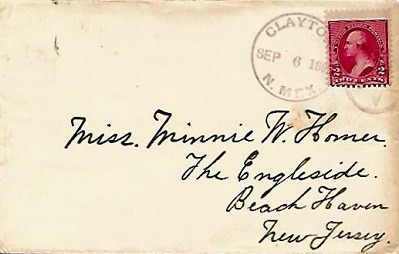 CLAYTO
SEP 6 18
N. MEX
Miss. Minnie W. Homer.
The Engleside.
Beach Haven
New Jersey.